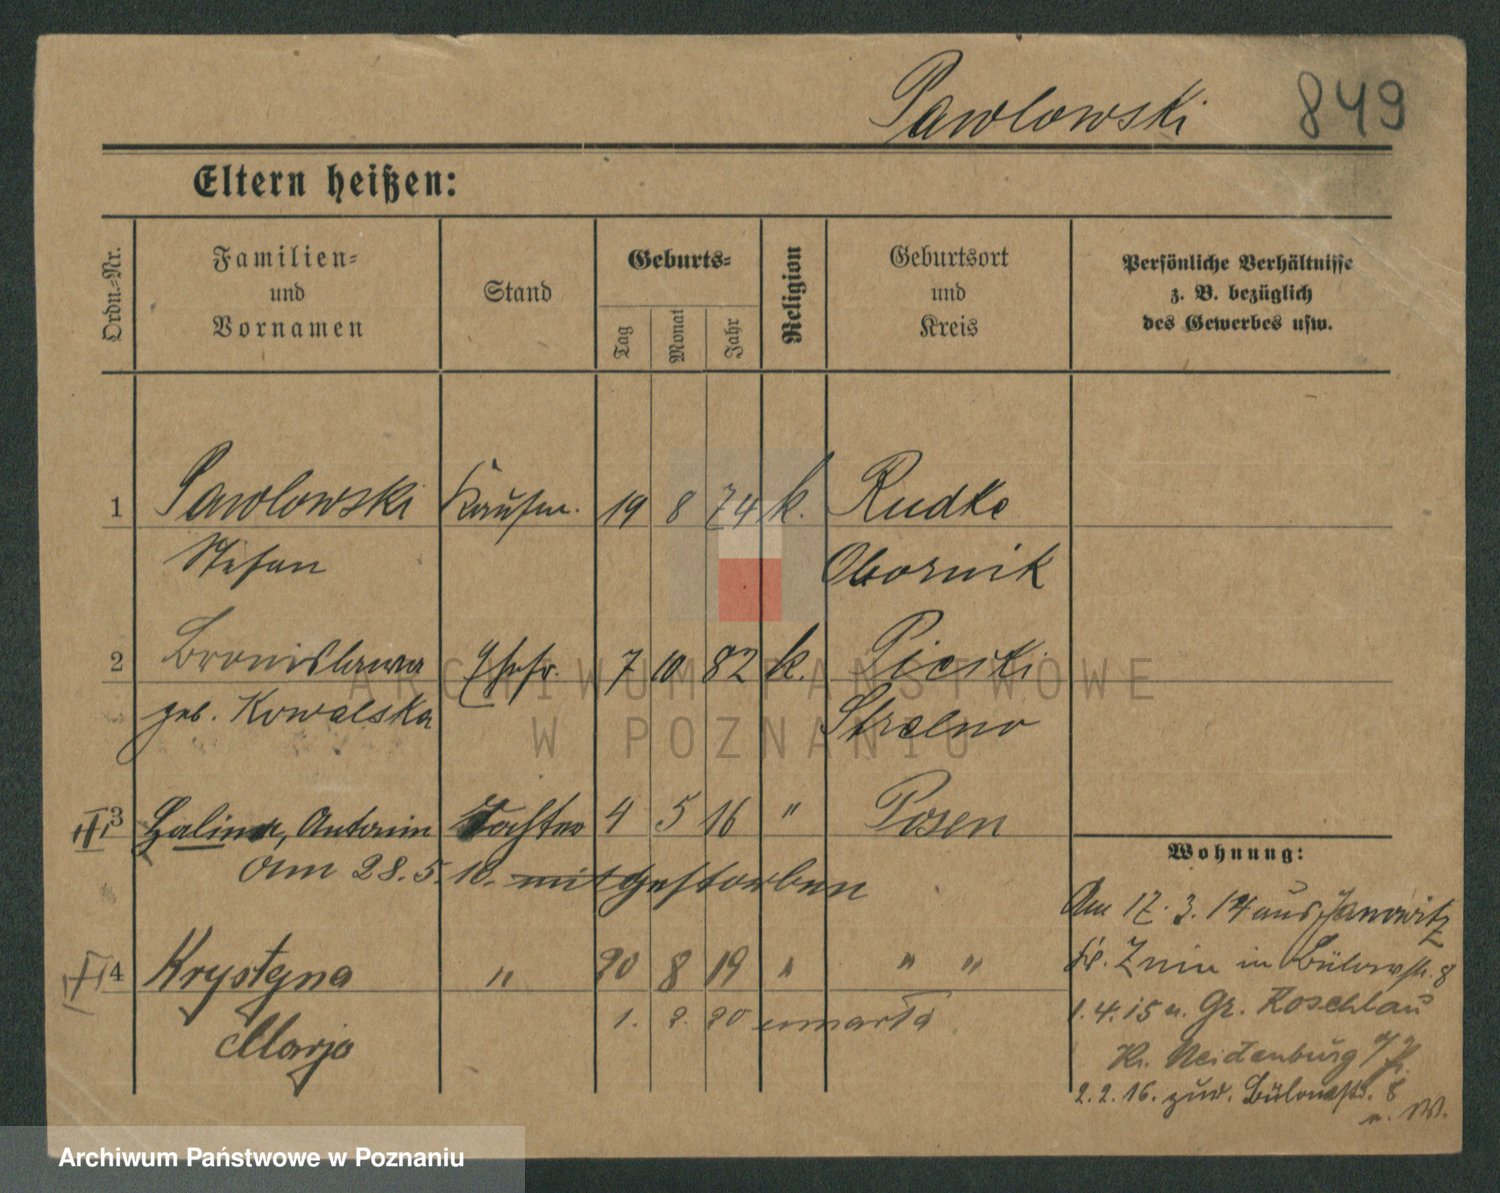 Pawlowski 849
Eltern heißen:
Ordn.-Nr.
Familien-
und
Vornamen
Stand
Geburts-
Tag
Monat
Jahr
Religion
Geburtsort
und
Kreis
Persönliche Verhältnisse
z. B. bezüglich
des Gewerbes usw.
1 Pawlowski Kaufm. 19 8 74 k. Rudke
Stefan Obornik
2 Bronislawa Ehefr. 7 10 82 k. Piecki
geb. Kowalska Strelno
3 Halina, Antonin Tochter 4 5 16 " Posen
am 28.5. gestorben
4 Krystyna " 20 8 19 " " "
Marja 1. 2. 20 umarła
Wohnung:
Am 17. 3. 14 aus Janowitz
Kr. Znin in Bülowstr. 8
1. 4. 15 n. Gr. Koschlau
Kr. Neidenburg
2. 2. 16. zur. Bülowstr. 8
ARCHIWUM PAŃSTWOWE
W POZNANIU
Archiwum Państwowe w Poznaniu